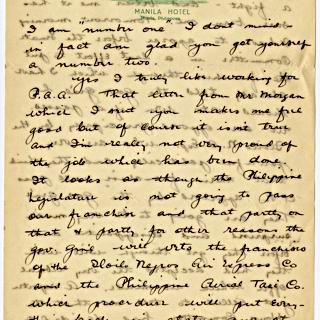 MANILA HOTEL
Manila, Philippines
I am "number one" I don't mind -
in fact am glad you get yourself
a number two.
Yes I truly like working for
P.A.A. That letter from Mr Morgan
which I sent you makes me feel
good but of course it isn't true
and I'm really not very proud of
the job which has been done.
It looks as though the Philippine
legislature is not going to pass
our franchise and that partly on
that & partly for other reasons the
Gov. Genl will veto the franchise
of the Iloilo Negros Air Express Co
and the Philippine Aerial Taxi Co.
which procedure will put every-